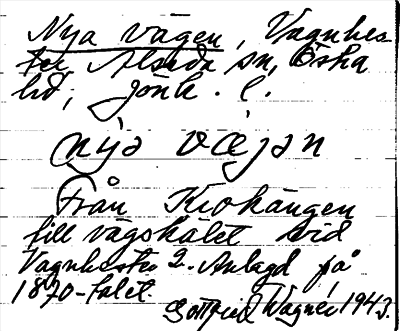 Nya vägen, Vagnhes-
ter Alseda sn, Östra
hd, Jönk. l.
nya væjan
Från Krohängen
till vägskälet vid
Vagnhester 2. Anlagd på
1870-talet.
Gottfrid Wagner 1943.